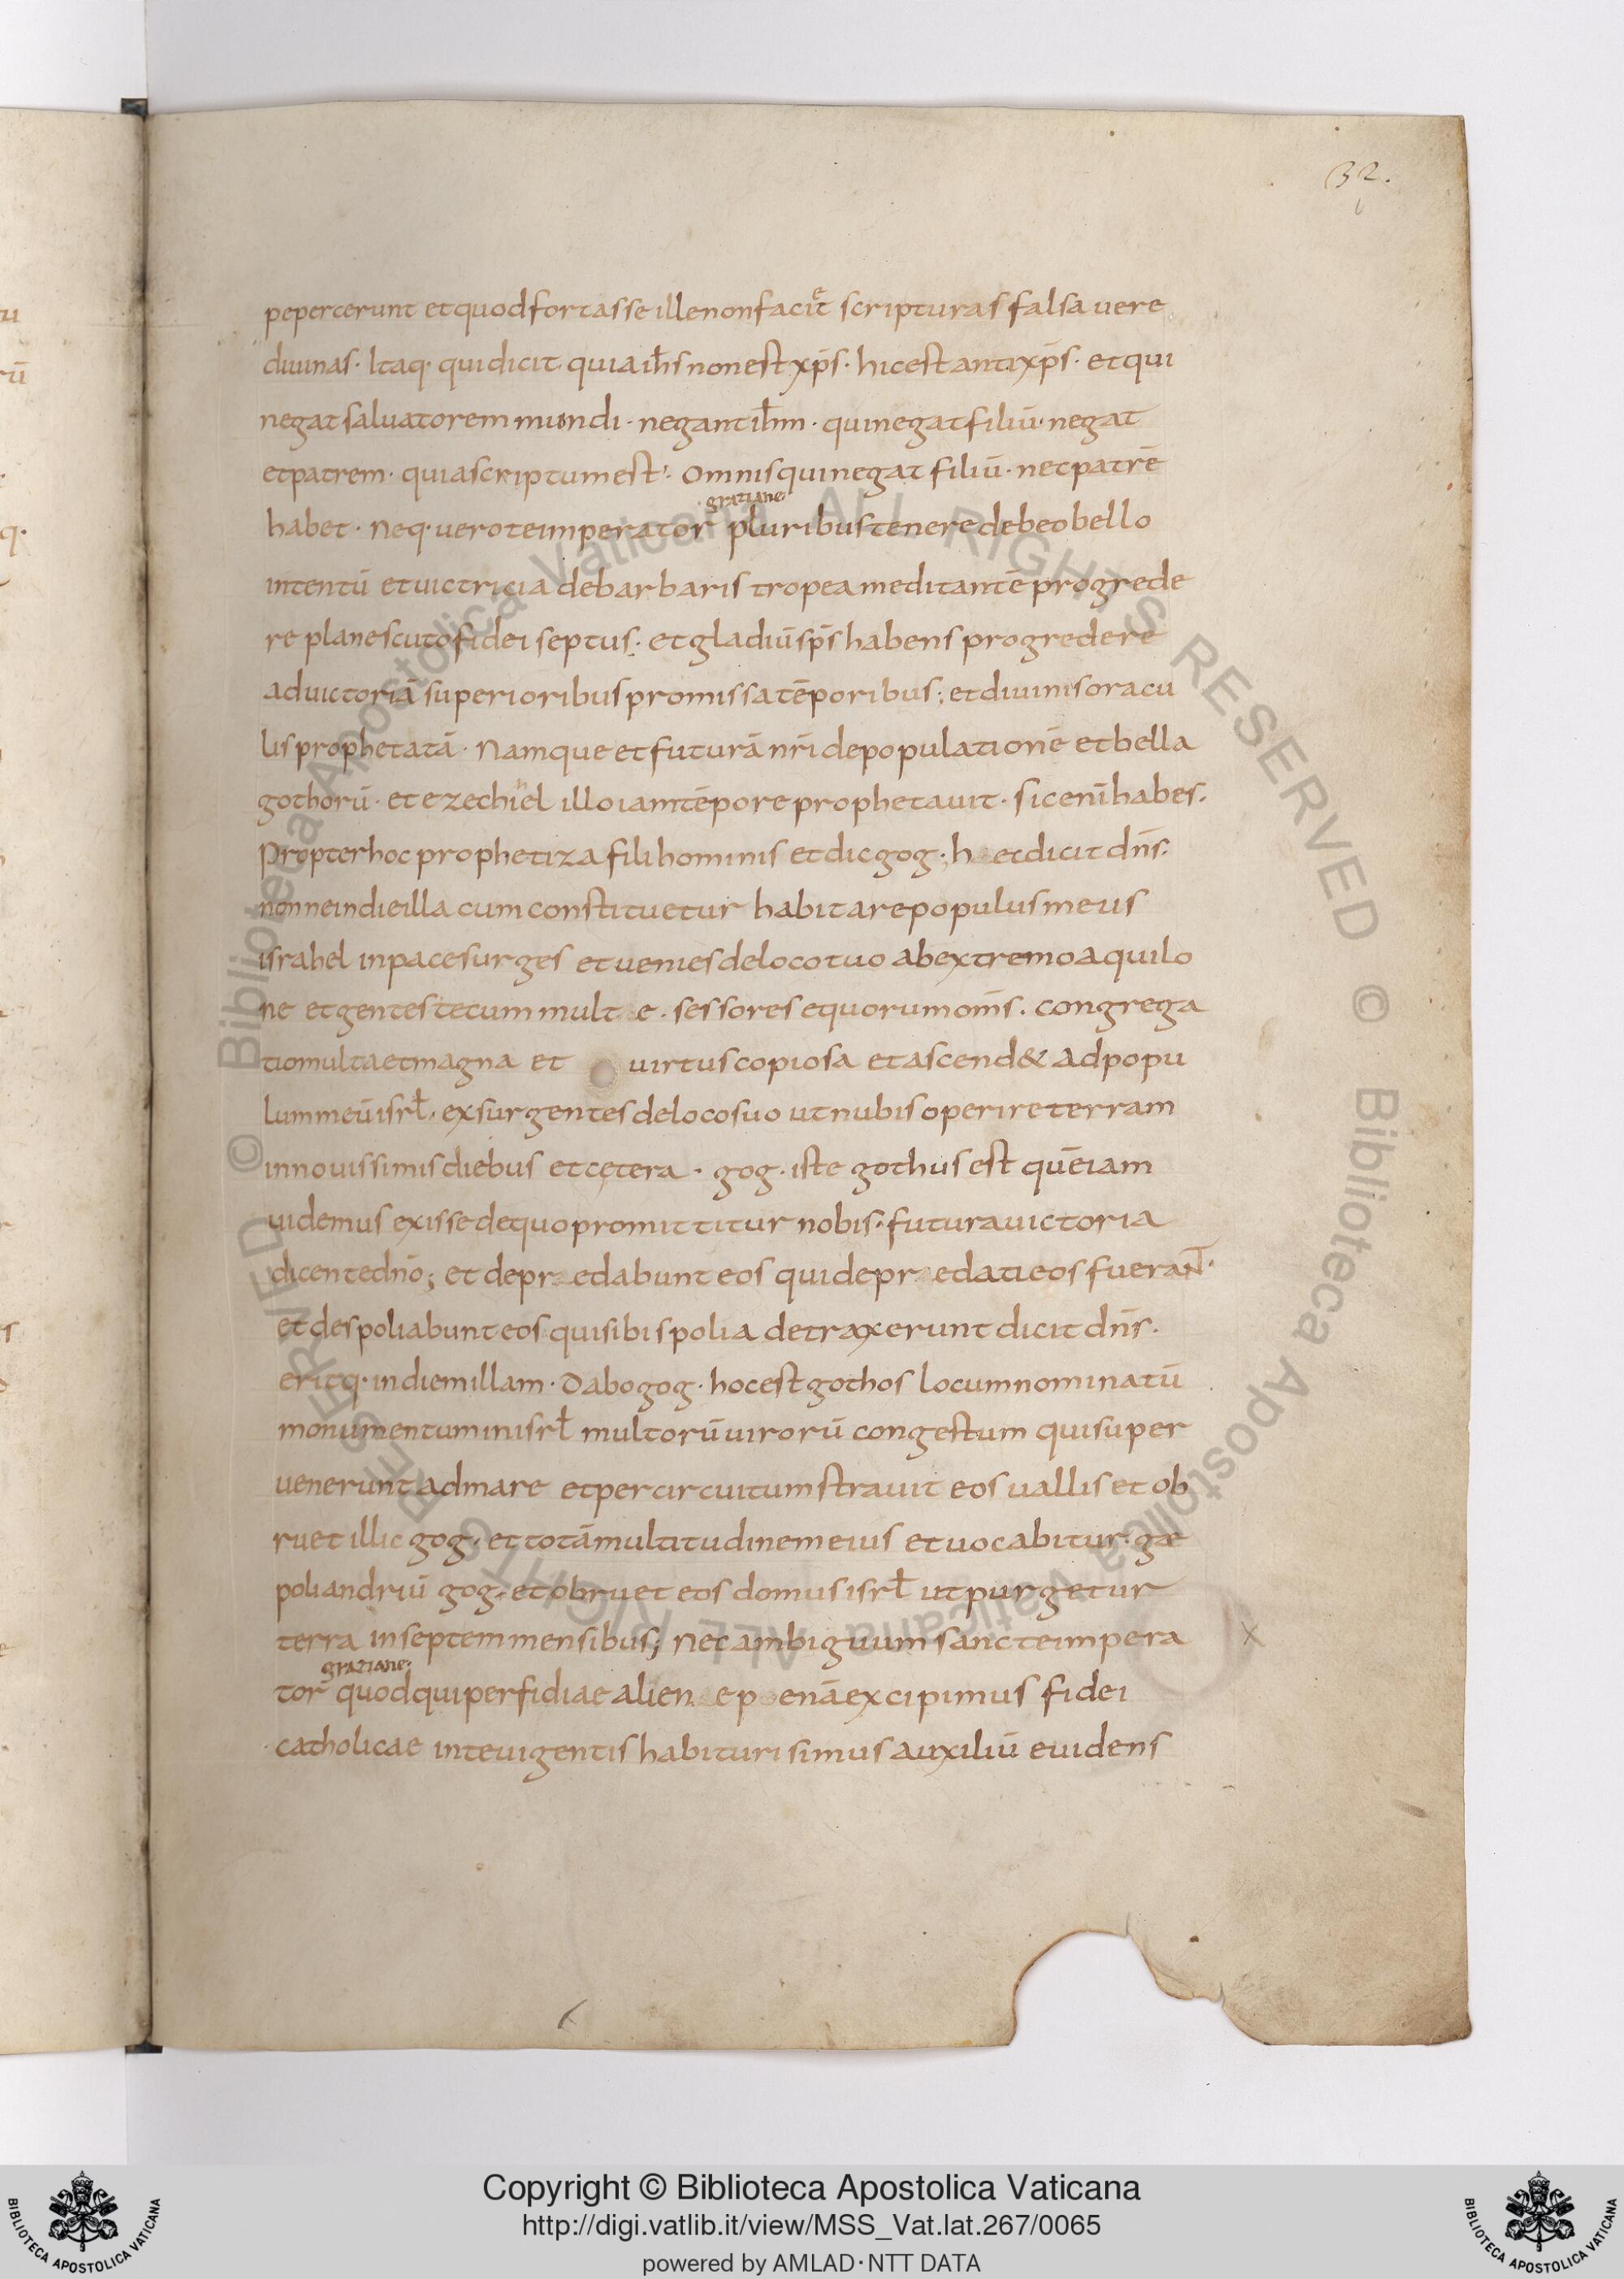 32.
pepercerunt et quod fortasse ille non facit̊ scripturas falsa uere
diuinas · Itaq· qui dicit quia ih̄s non est xp̄s · hic est antixp̄s · et qui
negat saluatorem mundi · negant ih̄m · qui negat filiū · negat
et patrem · quia scriptum est : Omnis qui negat filiū · nec patrē
gratiane
habet · Neq· uero te imperator pluribus tenere debeo bello
intentū et uictricia de barbaris tropea meditantē progrede
re plane scuto fidei septus · et gladiū sp̄s habens progredere
ad uictoriā superioribus promissa tēporibus ; et diuinis oracu
lis prophetatā · Namque et futurā nr̄i depopulationē et bella
gothorū · et ezechihel illo iam tēpore prophetauit · sic enī habes ·
Propter hoc prophetiza fili hominis et dic gog · h ec dicit dn̄s ·
nonne in die illa cum constituetur habitare populus meus
israhel in pace surges et uenies de loco tuo ab extremo aquilo
ne et gentes tecum mult e · sessores equorum om̄s · congrega
tio multa et magna et uirtus copiosa et ascend& ad popu
lum meū isrł · exsurgentes de loco suo ut nubis operire terram
in nouissimis diebus et cętera · gog · iste gothus est quē iam
uidemus exisse de quo promittitur nobis · futura uictoria
dicente dn̄o ; et depr edabunt eos qui depr edati eos fueraÑ ·
et despoliabunt eos qui sibi spolia detraxerunt dicit dn̄s ·
eritq· in diem illam · Dabo gog · hoc est gothos locum nominatū
monumentum in isrł multorū uirorū congestum qui super
uenerunt ad mare et per circuitum strauit eos uallis et ob
ruet illic gog · et totā multitudinem eius et uocabitur · gæ
poliandriū gog · et obruet eos domus isrł ut purgetur
terra in septem mensibus ; Nec ambiguum sancte impera
gratiane ·
tor quod qui perfidiae alien e p enā excipimus fidei
catholicae in te uigentis habituri simus auxiliū euidens
Copyright © Biblioteca Apostolica Vaticana
http://digi.vatlib.it/view/MSS_Vat.lat.267/0065
powered by AMLAD·NTT DATA
© Biblioteca Apostolica Vaticana ALL RIGHTS RESERVED © Biblioteca Apostolica Vaticana ALL RIGHTS RESERVED
BIBLIOTECA APOSTOLICA VATICANA
BIBLIOTECA APOSTOLICA VATICANA